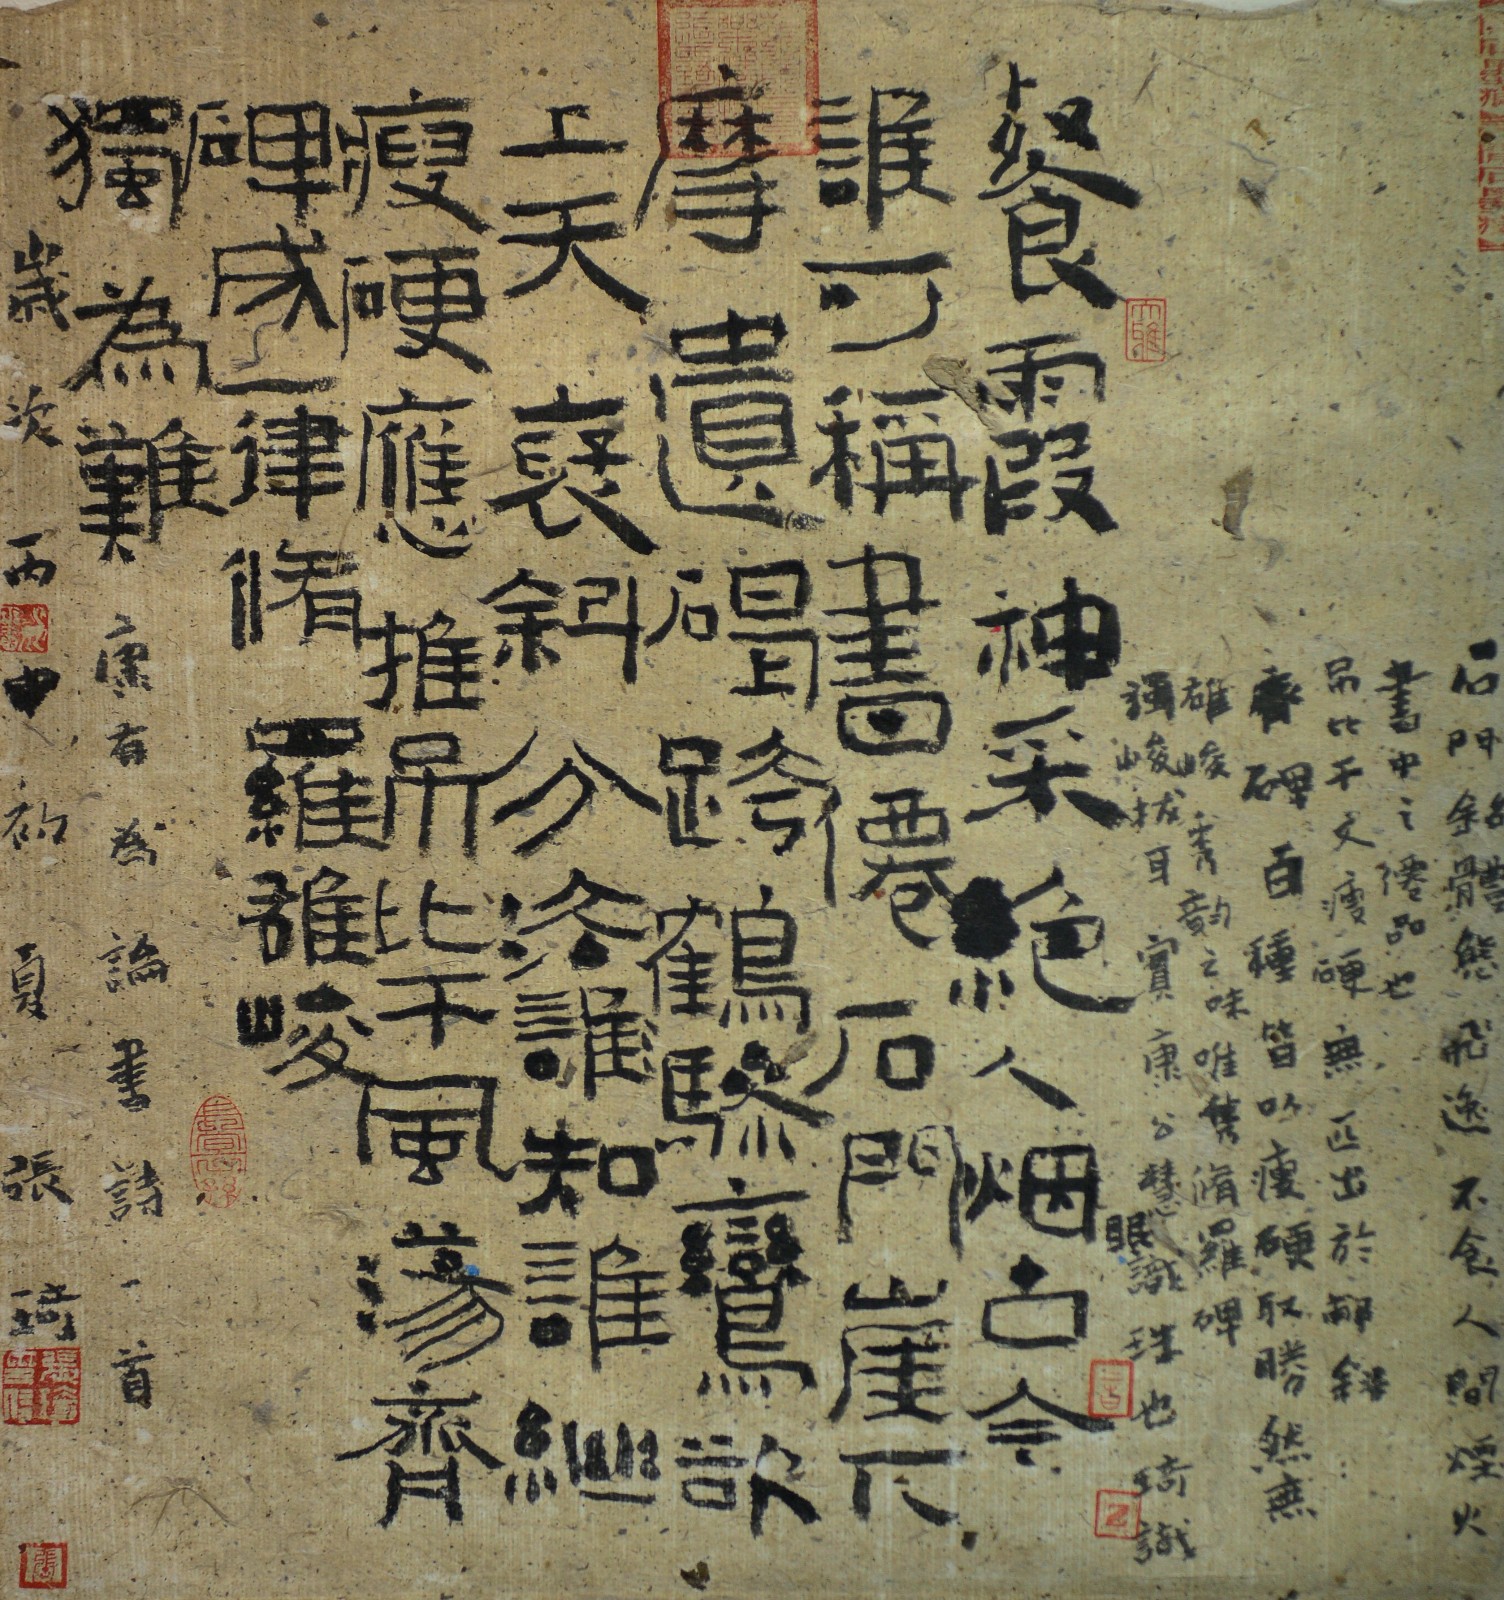 石門銘體態飛逸不食人間煙火
書中之僊品也
吊比干文瘦硬無匹出於
齊碑百種皆以瘦硬取勝然無
雄峻秀韵之味唯雋脩羅碑
強峻拔耳實康公慧眼識珠也琦識
餐霞神采絕人烟古今
誰可稱書僊石門崖下
摩遺碣跨鶴驂鸞欲
上天襃斜分法誰知誰繼
瘦硬應推吊比干風蕩齊
碑成一律脩羅雄峻
獨為難
康有為論書詩一首
歲次丙申初夏張琦